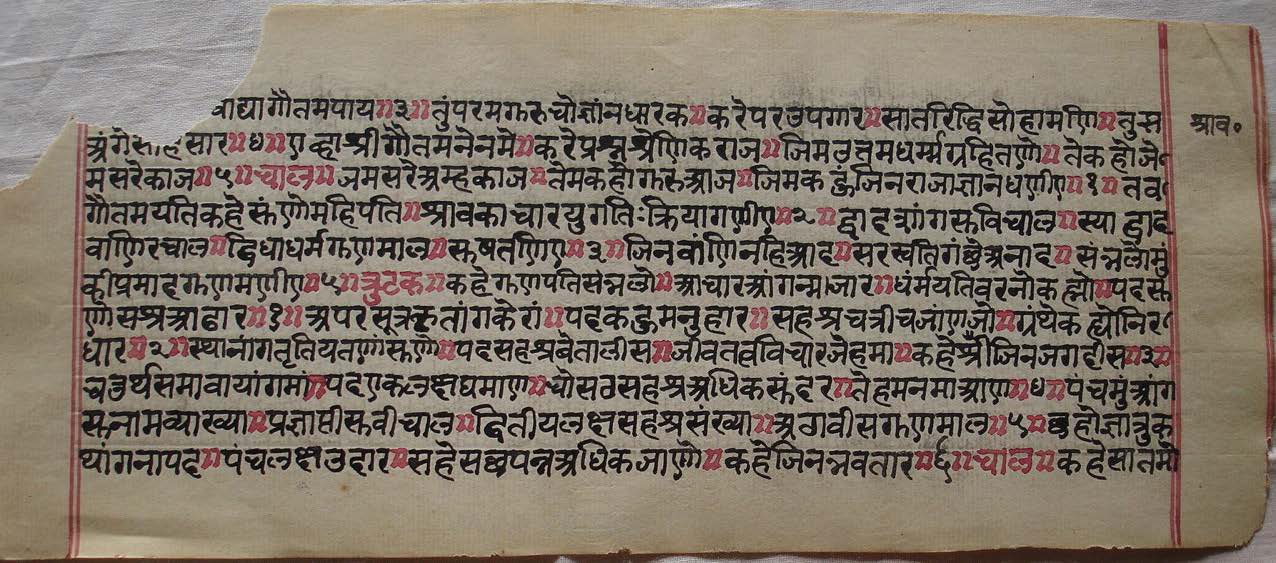 वाद्यागौतमपाय॥३॥तुंपरमगुरुचोज्ञांनधारक॥करेपरउपगार॥सातरिद्धिसोहामणि॥तुझ
अंगे सार॥४॥एव्हाश्रीगौतमनेनमे॥करेप्रश्नश्रेणिकराज॥जिमउत्तमधर्म्मग्रहितणो॥तेकहोजे
श्राव॰
मसरेकाज॥५॥चाल॥जमसरेअम्हकाज॥तेमकहोगुरुआज॥जिमकह्युंजिनराजाज्ञानधणीए॥१॥तव
गौतमयतिकहेसुंणोमहिपति॥श्रावकाचारयुगतिःक्रियांगणीए॥२॥द्वादशांगसुविचाल॥स्याद्वाद
वाणिरचाल॥द्विधाधर्मगुणमाल॥सुषतणिए॥३॥जिनवांणिनहिआद॥सरस्वतिगंछेअनाद॥संभलोमुं
कीप्रमादगुणमणीए॥५॥त्रुटक॥कहेगणपतिसंभलो॥आचारआंगन्माजार॥धंर्मयतिवरनोकह्यो॥पदसु
णोसश्रआढार॥१॥अपरसूत्रकृतांगकेरां॥पदकह्युमनुहार॥सहश्रचत्रीचजांणजो॥ग्रंथेकह्योनिर
धार॥२॥स्थानांगतृतियतणुसुणो॥पदसहश्रबेतालीस॥जीवतत्वविचारजेहमां॥कहेश्रीजिनजगदीस॥३॥
चउर्थसमावायांगमां॥पदएकलक्षघमाण॥चोसठसहश्रअधिकसुंदर॥तेहमनमाआण॥४॥पंचमुंआंग
सुनामव्याख्या॥प्रज्ञाप्तीसुवीचाल॥द्वितीयलक्षसहश्रसंख्या॥अठावीसगुणमाल॥५॥छठ्ठोज्ञात्रुक
थांगनापद॥पंचलक्षउदार॥सहेसछपन्नअधिकजाणो॥कहेजिनभवतार॥६॥चाल॥कहेसातमो